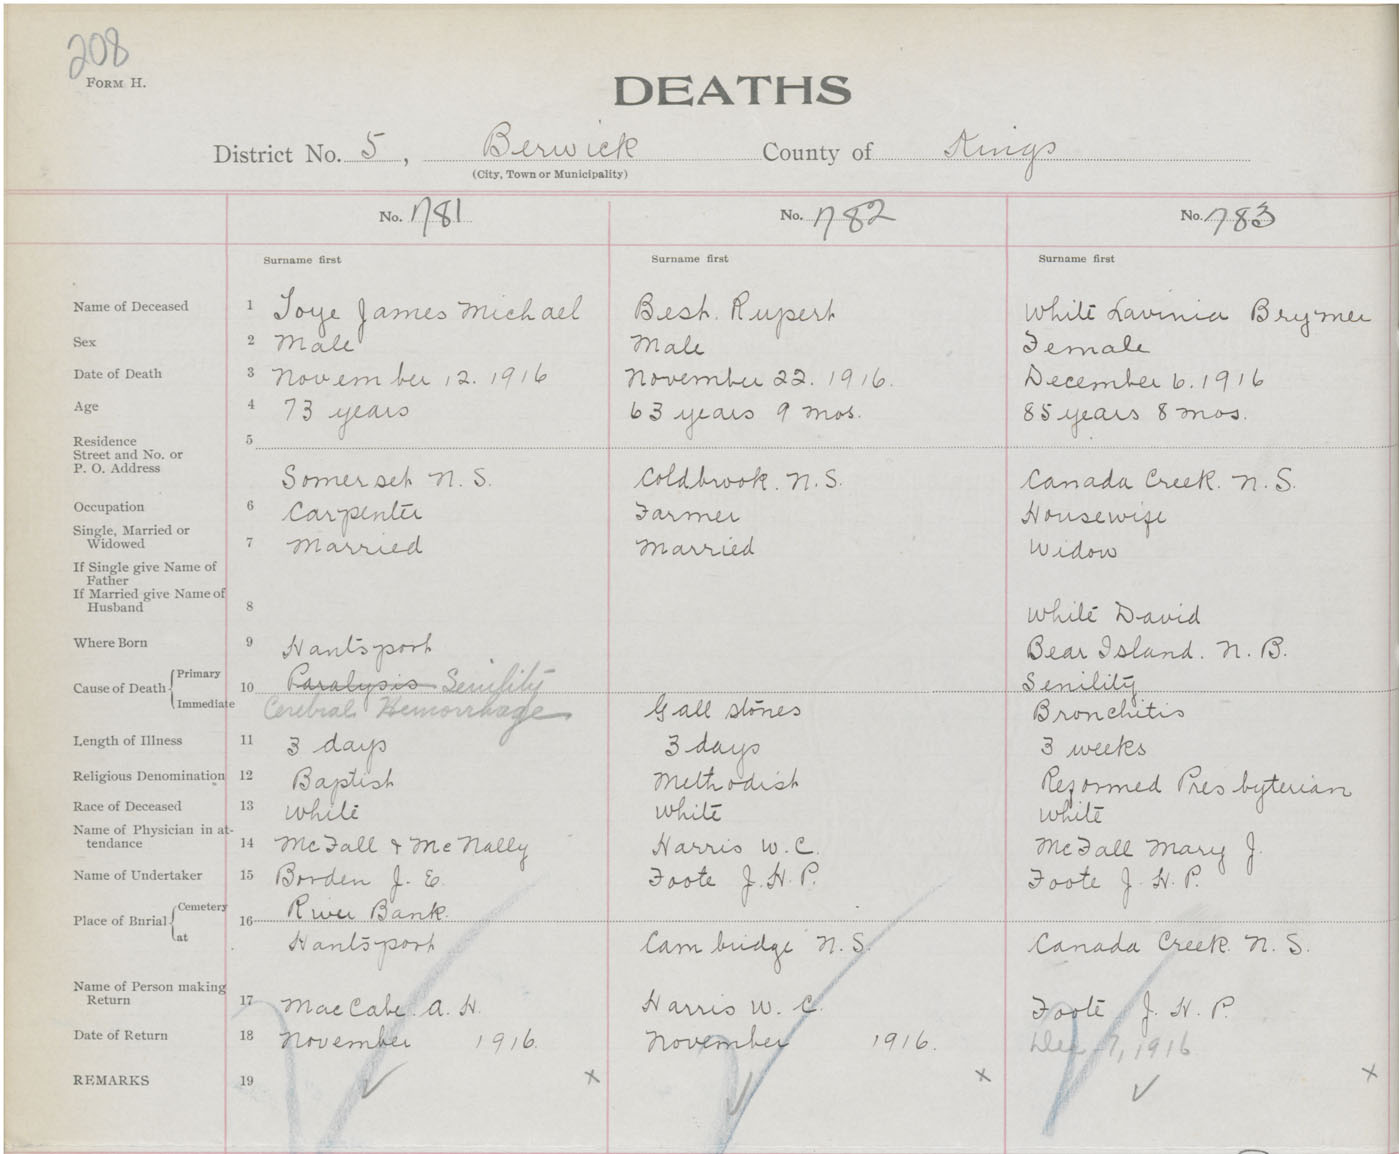 208
FORM H.
DEATHS
District No. 5, Berwick County of Kings
(City, Town or Municipality)
No. 1781 No. 1782 No. 1783
Surname first Surname first Surname first
Name of Deceased 1 Toye James Michael Best. Rupert White Lavinia Brymer
Sex 2 Male Male Female
Date of Death 3 November 12. 1916 November 22. 1916. December 6. 1916
Age 4 73 years 63 years 9 mos. 85 years 8 mos.
Residence 5
Street and No. or
P. O. Address
Somerset N. S. Coldbrook. N. S. Canada Creek. N. S.
Occupation 6 Carpenter Farmer Housewife
Single, Married or
Widowed 7 Married Married Widow
If Single give Name of
Father
If Married give Name of
Husband 8 White David
Where Born 9 Hantsport Bear Island. N. B.
Cause of Death Primary 10 Paralysis Senility Senility
Immediate Cerebral Hemorrhage Gall stones Bronchitis
Length of Illness 11 3 days 3 days 3 weeks
Religious Denomination 12 Baptist Methodist Reformed Presbyterian
Race of Deceased 13 White White White
Name of Physician in at-
tendance 14 McFall & McNally Harris W. C. McFall Mary J.
Name of Undertaker 15 Borden J. E. Foote J. H. P. Foote J. H. P.
Place of Burial Cemetery 16 River Bank.
at Hantsport Cambridge N. S. Canada Creek. N. S.
Name of Person making
Return 17 MacCabe. A. H. Harris W. C. Foote J. H. P.
Date of Return 18 November 1916. November 1916. Dec 7, 1916
REMARKS 19 ✓ x ✓ x ✓ x